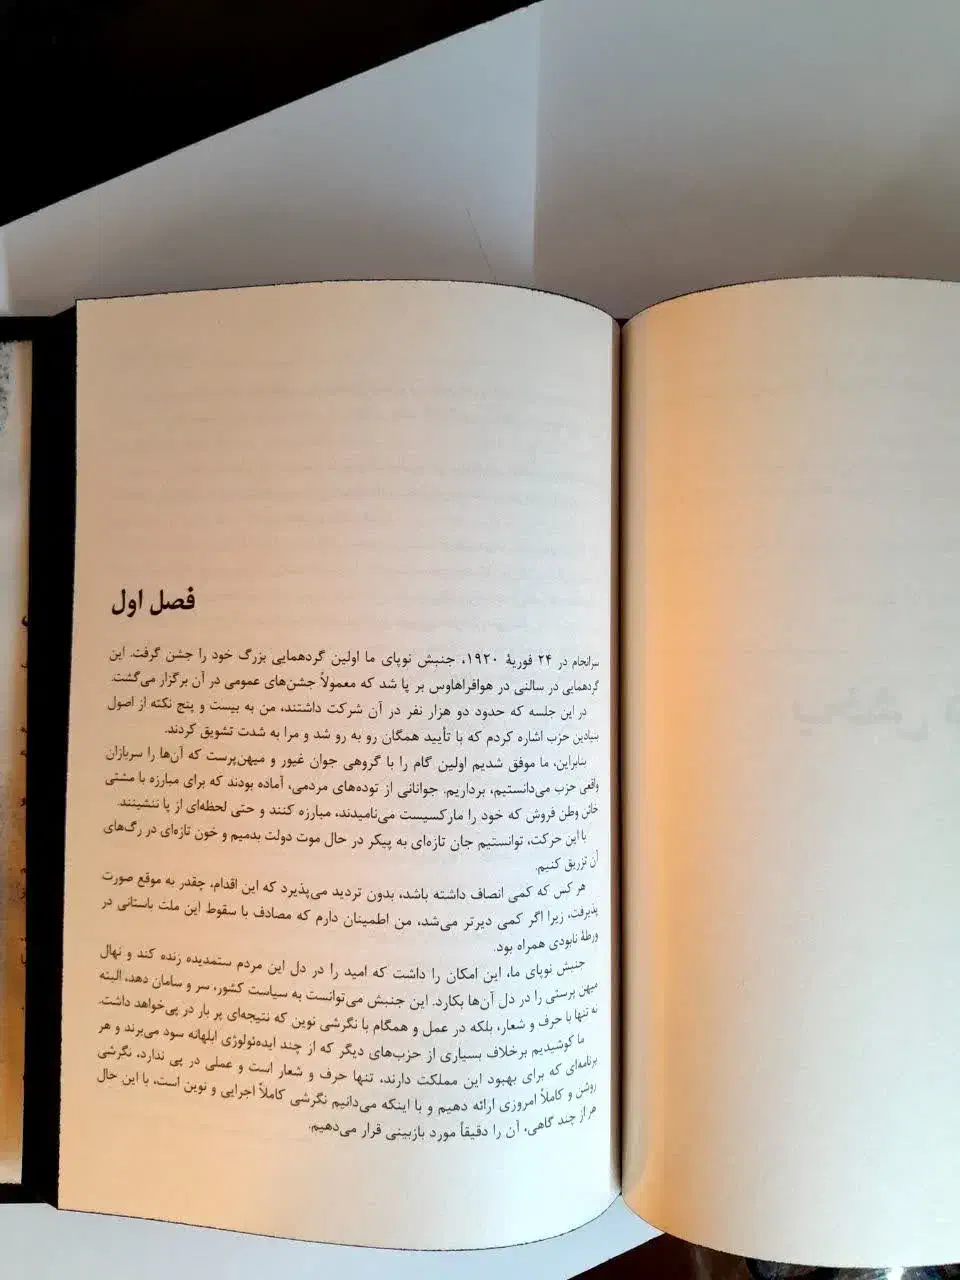 فصل اول
سرانجام در ۲۴ فوریهٔ ۱۹۲۰، جنبش نوپای ما اولین گردهمایی بزرگ خود را جشن گرفت. این
گردهمایی در سالنی در هوافراهاوس بر پا شد که معمولاً جشن‌های عمومی در آن برگزار می‌گشت.
در این جلسه که حدود دو هزار نفر در آن شرکت داشتند، من به بیست و پنج نکته از اصول
بنیادین حزب اشاره کردم که با تأیید همگان رو به رو شد و مرا به شدت تشویق کردند.
بنابراین، ما موفق شدیم اولین گام را با گروهی جوان غیور و میهن‌پرست که آن‌ها را سربازان
واقعی حزب می‌دانستیم، برداریم. جوانانی از توده‌های مردمی، آماده بودند که برای مبارزه با مشتی
خائن وطن فروش که خود را مارکسیست می‌نامیدند، مبارزه کنند و حتی لحظه‌ای از پا ننشینند.
با این حرکت، توانستیم جان تازه‌ای به پیکر در حال موت دولت بدمیم و خون تازه‌ای در رگ‌های
آن تزریق کنیم.
هر کس که کمی انصاف داشته باشد، بدون تردید می‌پذیرد که این اقدام، چقدر به موقع صورت
پذیرفت، زیرا اگر کمی دیرتر می‌شد، من اطمینان دارم که مصادف با سقوط این ملت باستانی در
ورطهٔ نابودی همراه بود.
جنبش نوپای ما، این امکان را داشت که امید را در دل این مردم ستمدیده زنده کند و نهال
میهن پرستی را در دل آن‌ها بکارد. این جنبش می‌توانست به سیاست کشور، سر و سامان دهد، البته
نه تنها با حرف و شعار، بلکه در عمل و همگام با نگرشی نوین که نتیجه‌ای پر بار در پی‌خواهد داشت.
ما کوشیدیم برخلاف بسیاری از حزب‌های دیگر که از چند ایده‌ئولوژی ابلهانه سود می‌برند و هر
برنامه‌ای که برای بهبود این مملکت دارند، تنها حرف و شعار است و عملی در پی ندارد، نگرشی
روشن و کاملاً امروزی ارائه دهیم و با اینکه می‌دانیم نگرشی کاملاً اجرایی و نوین است، با این حال
هر از چند گاهی، آن را دقیقاً مورد بازبینی قرار می‌دهیم.